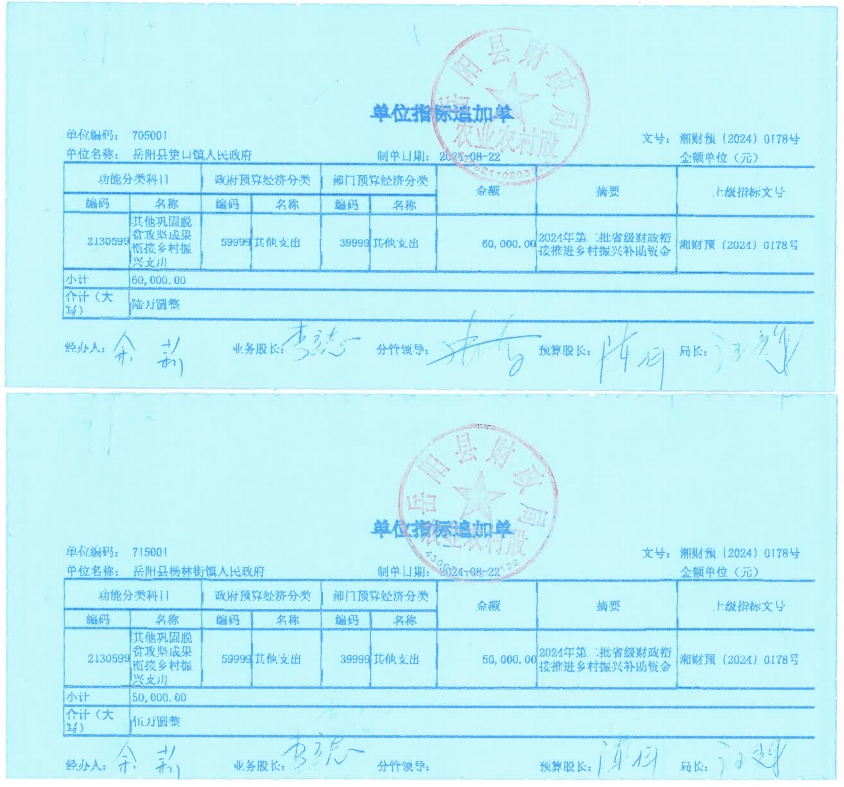 岳阳县财政局
农业农村股
单位指标追加单
单位编码： 705001 文号： 湘财预（2024）0178号
单位名称： 岳阳县筻口镇人民政府 制单日期： 2024-08-22 金额单位（元）
功能分类科目 政府预算经济分类 部门预算经济分类 金额 摘要 上级指标文号
编码 名称 编码 名称 编码 名称
2130599 其他巩固脱贫攻坚成果衔接乡村振兴支出 59999 其他支出 39999 其他支出 60,000.00 2024年第二批省级财政衔接推进乡村振兴补助资金 湘财预（2024）0178号
小计 60,000.00
合计（大写） 陆万圆整
经办人： 余莉 业务股长： 分管领导： 预算股长： 局长：
岳阳县财政局
农业农村股
单位指标追加单
单位编码： 715001 文号： 湘财预（2024）0178号
单位名称： 岳阳县杨林街镇人民政府 制单日期： 2024-08-22 金额单位（元）
功能分类科目 政府预算经济分类 部门预算经济分类 金额 摘要 上级指标文号
编码 名称 编码 名称 编码 名称
2130599 其他巩固脱贫攻坚成果衔接乡村振兴支出 59999 其他支出 39999 其他支出 50,000.00 2024年第二批省级财政衔接推进乡村振兴补助资金 湘财预（2024）0178号
小计 50,000.00
合计（大写） 伍万圆整
经办人： 余莉 业务股长： 分管领导： 预算股长： 局长：